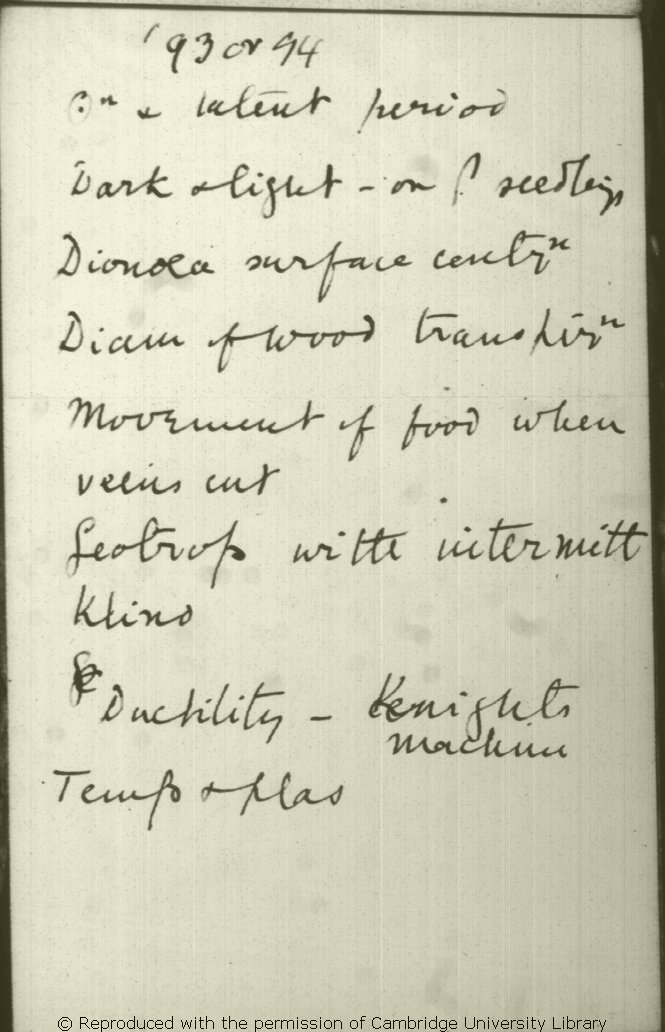 '93 or 94
& latent period
Dark & light - on seedlings
Dionoea surface centrn
Diam of wood transpirn
Movement of food when
veins cut
Geotrop with intermitt
Klino
Ductility - Knights
machine
Temp & plas
© Reproduced with the permission of Cambridge University Library